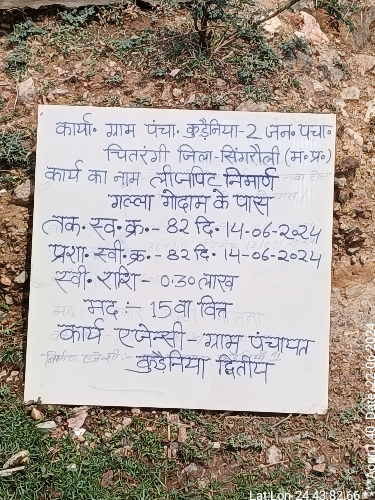 कार्या॰ ग्राम पंचा॰ कुडैनिया-2 जन॰ पंचा॰
चितरंगी जिला-सिंगरौली (म॰प्र॰)
कार्य का नाम लीजपिट निमार्ण
गल्ला गोदाम के पास
तक॰ स्व॰ क्र॰ - 82 दि॰ 14-06-2024
प्रशा॰ स्वी॰ क्र॰ - 82 दि॰ 14-06-2024
स्वी॰ राशि - 0.30 लाख
मद :- 15 वा वित्त
कार्य एजेन्सी - ग्राम पंचायत
कुडैनिया द्वितीय
Lat Lon 24.43.82.66
Date 22-06-2024